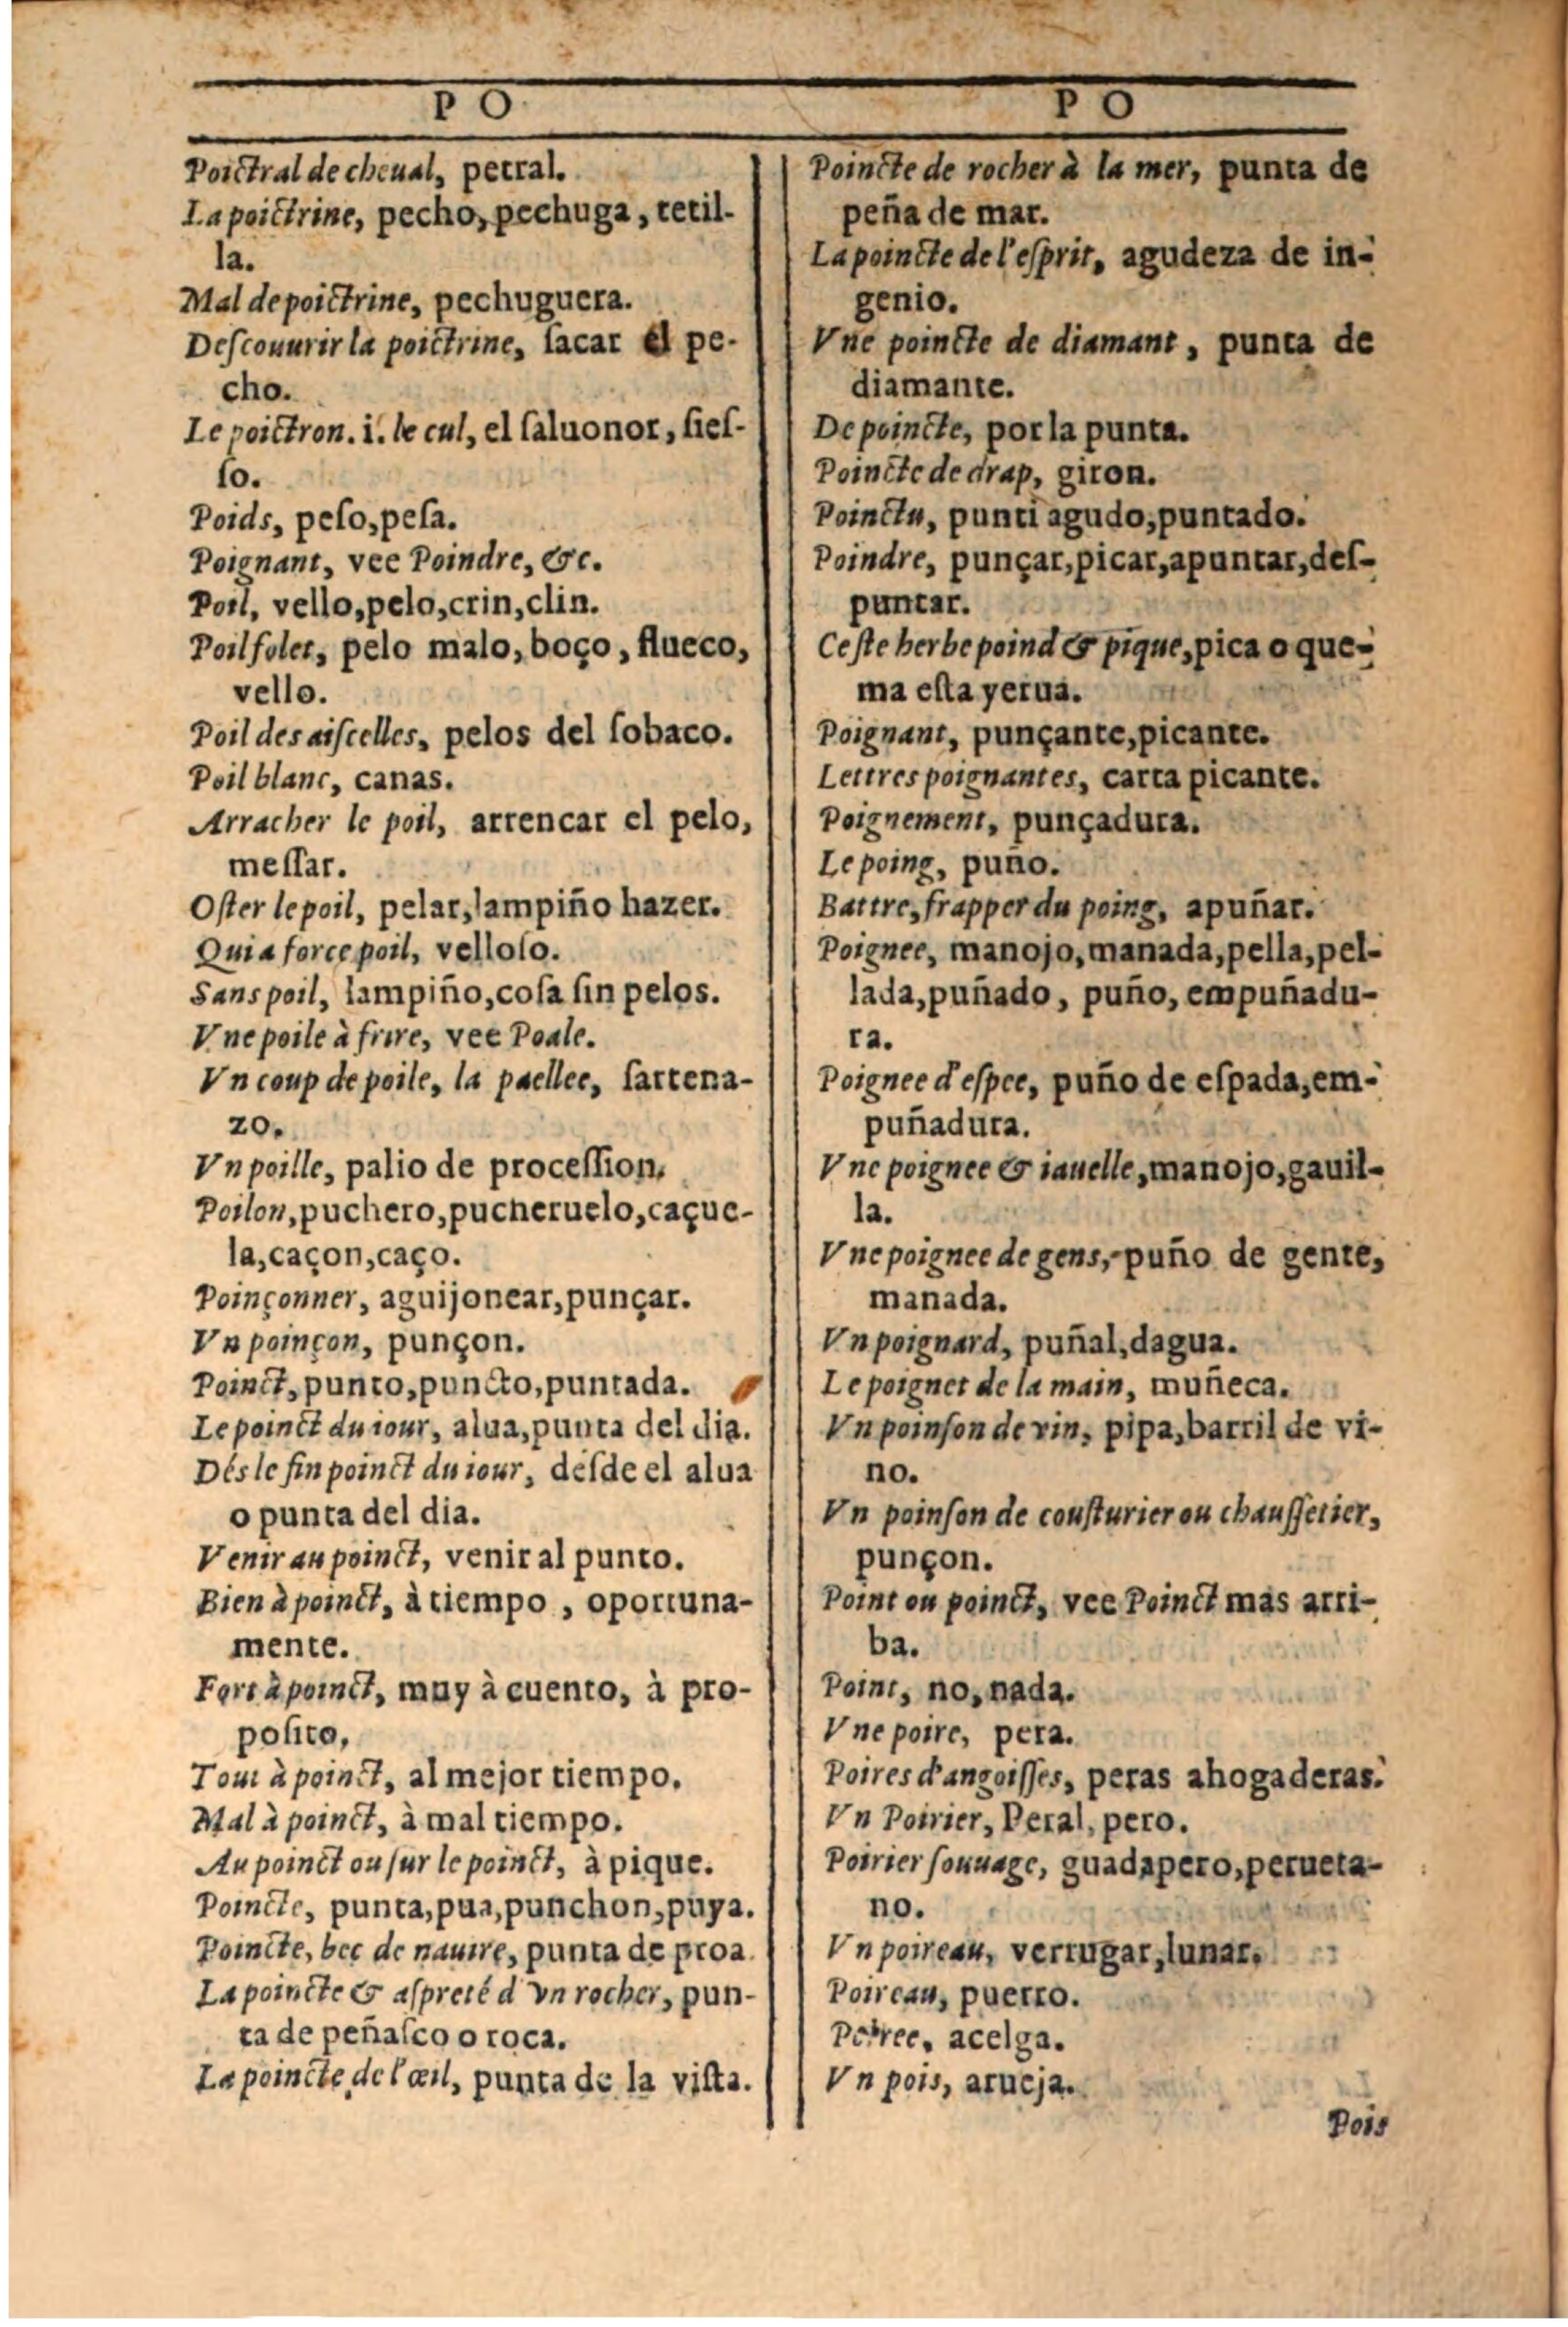 P O
Poictral de cheual, petral.
La poictrine, pecho, pechuga, tetil-
la.
Mal de poictrine, pechuguera.
Deſcouurir la poictrine, ſacar el pe-
cho.
Le poictron. i. le cul, el ſaluonor, ſieſ-
ſo.
Poids, peſo, peſa.
Poignant, vee Poindre, &c.
Poil, vello, pelo, crin, clin.
Poil folet, pelo malo, boço, flueco,
vello.
Poil des aiſcelles, pelos del ſobaco.
Poil blanc, canas.
Arracher le poil, arrencar el pelo,
meſſar.
Oſter le poil, pelar, lampiño hazer.
Qui a force poil, velloſo.
Sans poil, lampiño, coſa ſin pelos.
Vne poile à frire, vee Poale.
Vn coup de poile, la paellee, ſartena-
zo.
Vn poille, palio de proceſſion.
Poilon, puchero, pucheruelo, caçue-
la, caçon, caço.
Poinçonner, aguijonear, punçar.
Vn poinçon, punçon.
Poinct, punto, puncto, puntada.
Le poinct du iour, alua, punta del dia.
Dés le fin poinct du iour, deſde el alua
o punta del dia.
Venir au poinct, venir al punto.
Bien à poinct, à tiempo, oportuna-
mente.
Fort à poinct, muy à cuento, à pro-
poſito,
Tout à poinct, al mejor tiempo.
Mal à poinct, à mal tiempo.
Au poinct ou ſur le poinct, à pique.
Poincte, punta, pua, punchon, puya.
Poincte, bec de nauire, punta de proa.
La poincte & aſpreté d'vn rocher, pun-
ta de peñaſco o roca.
La poincte de l'œil, punta de la viſta.
P O
Poincte de rocher à la mer, punta de
peña de mar.
La poincte de l'eſprit, agudeza de in-
genio.
Vne poincte de diamant, punta de
diamante.
De poincte, por la punta.
Poincte de drap, giron.
Poinctu, punti agudo, puntado.
Poindre, punçar, picar, apuntar, deſ-
puntar.
Ceſte herbe poind & pique, pica o que-
ma eſta yerua.
Poignant, punçante, picante.
Lettres poignantes, carta picante.
Poignement, punçadura.
Le poing, puño.
Battre, frapper du poing, apuñar.
Poignee, manojo, manada, pella, pel-
lada, puñado, puño, empuñadu-
ra.
Poignee d'eſpee, puño de eſpada, em-
puñadura.
Vne poignee & iauelle, manojo, gauil-
la.
Vne poignee de gens, puño de gente,
manada.
Vn poignard, puñal, dagua.
Le poignet de la main, muñeca.
Vn poinſon de vin, pipa, barril de vi-
no.
Vn poinſon de couſturier ou chauſſetier,
punçon.
Point ou poinct, vee Poinct mas arri-
ba.
Point, no, nada.
Vne poire, pera.
Poires d'angoiſſes, peras ahogaderas.
Vn Poirier, Peral, pero.
Poirier ſouuage, guadapero, perueta-
no.
Vn poireau, verrugar, lunar.
Poireau, puerro.
Poiree, acelga.
Vn pois, arueja.
Pois